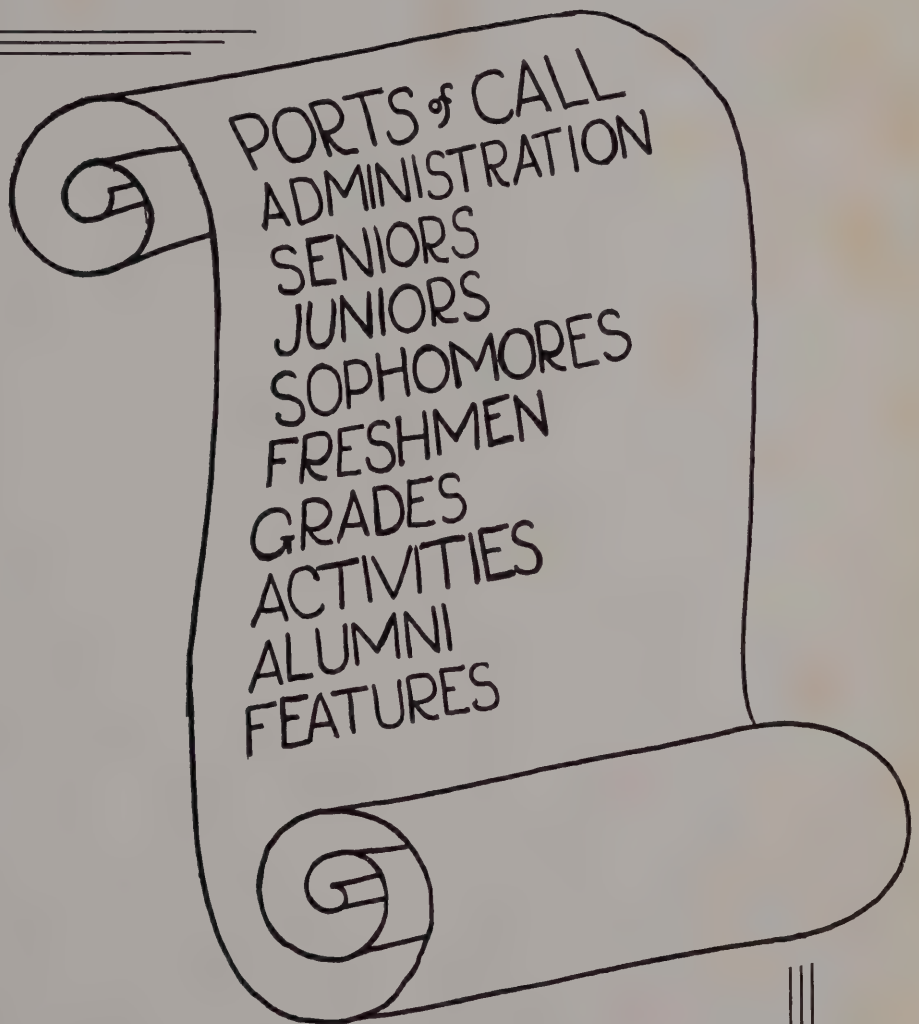 PORTS of CALL
ADMINISTRATION
SENIORS
JUNIORS
SOPHOMORES
FRESHMEN
GRADES
ACTIVITIES
ALUMNI
FEATURES